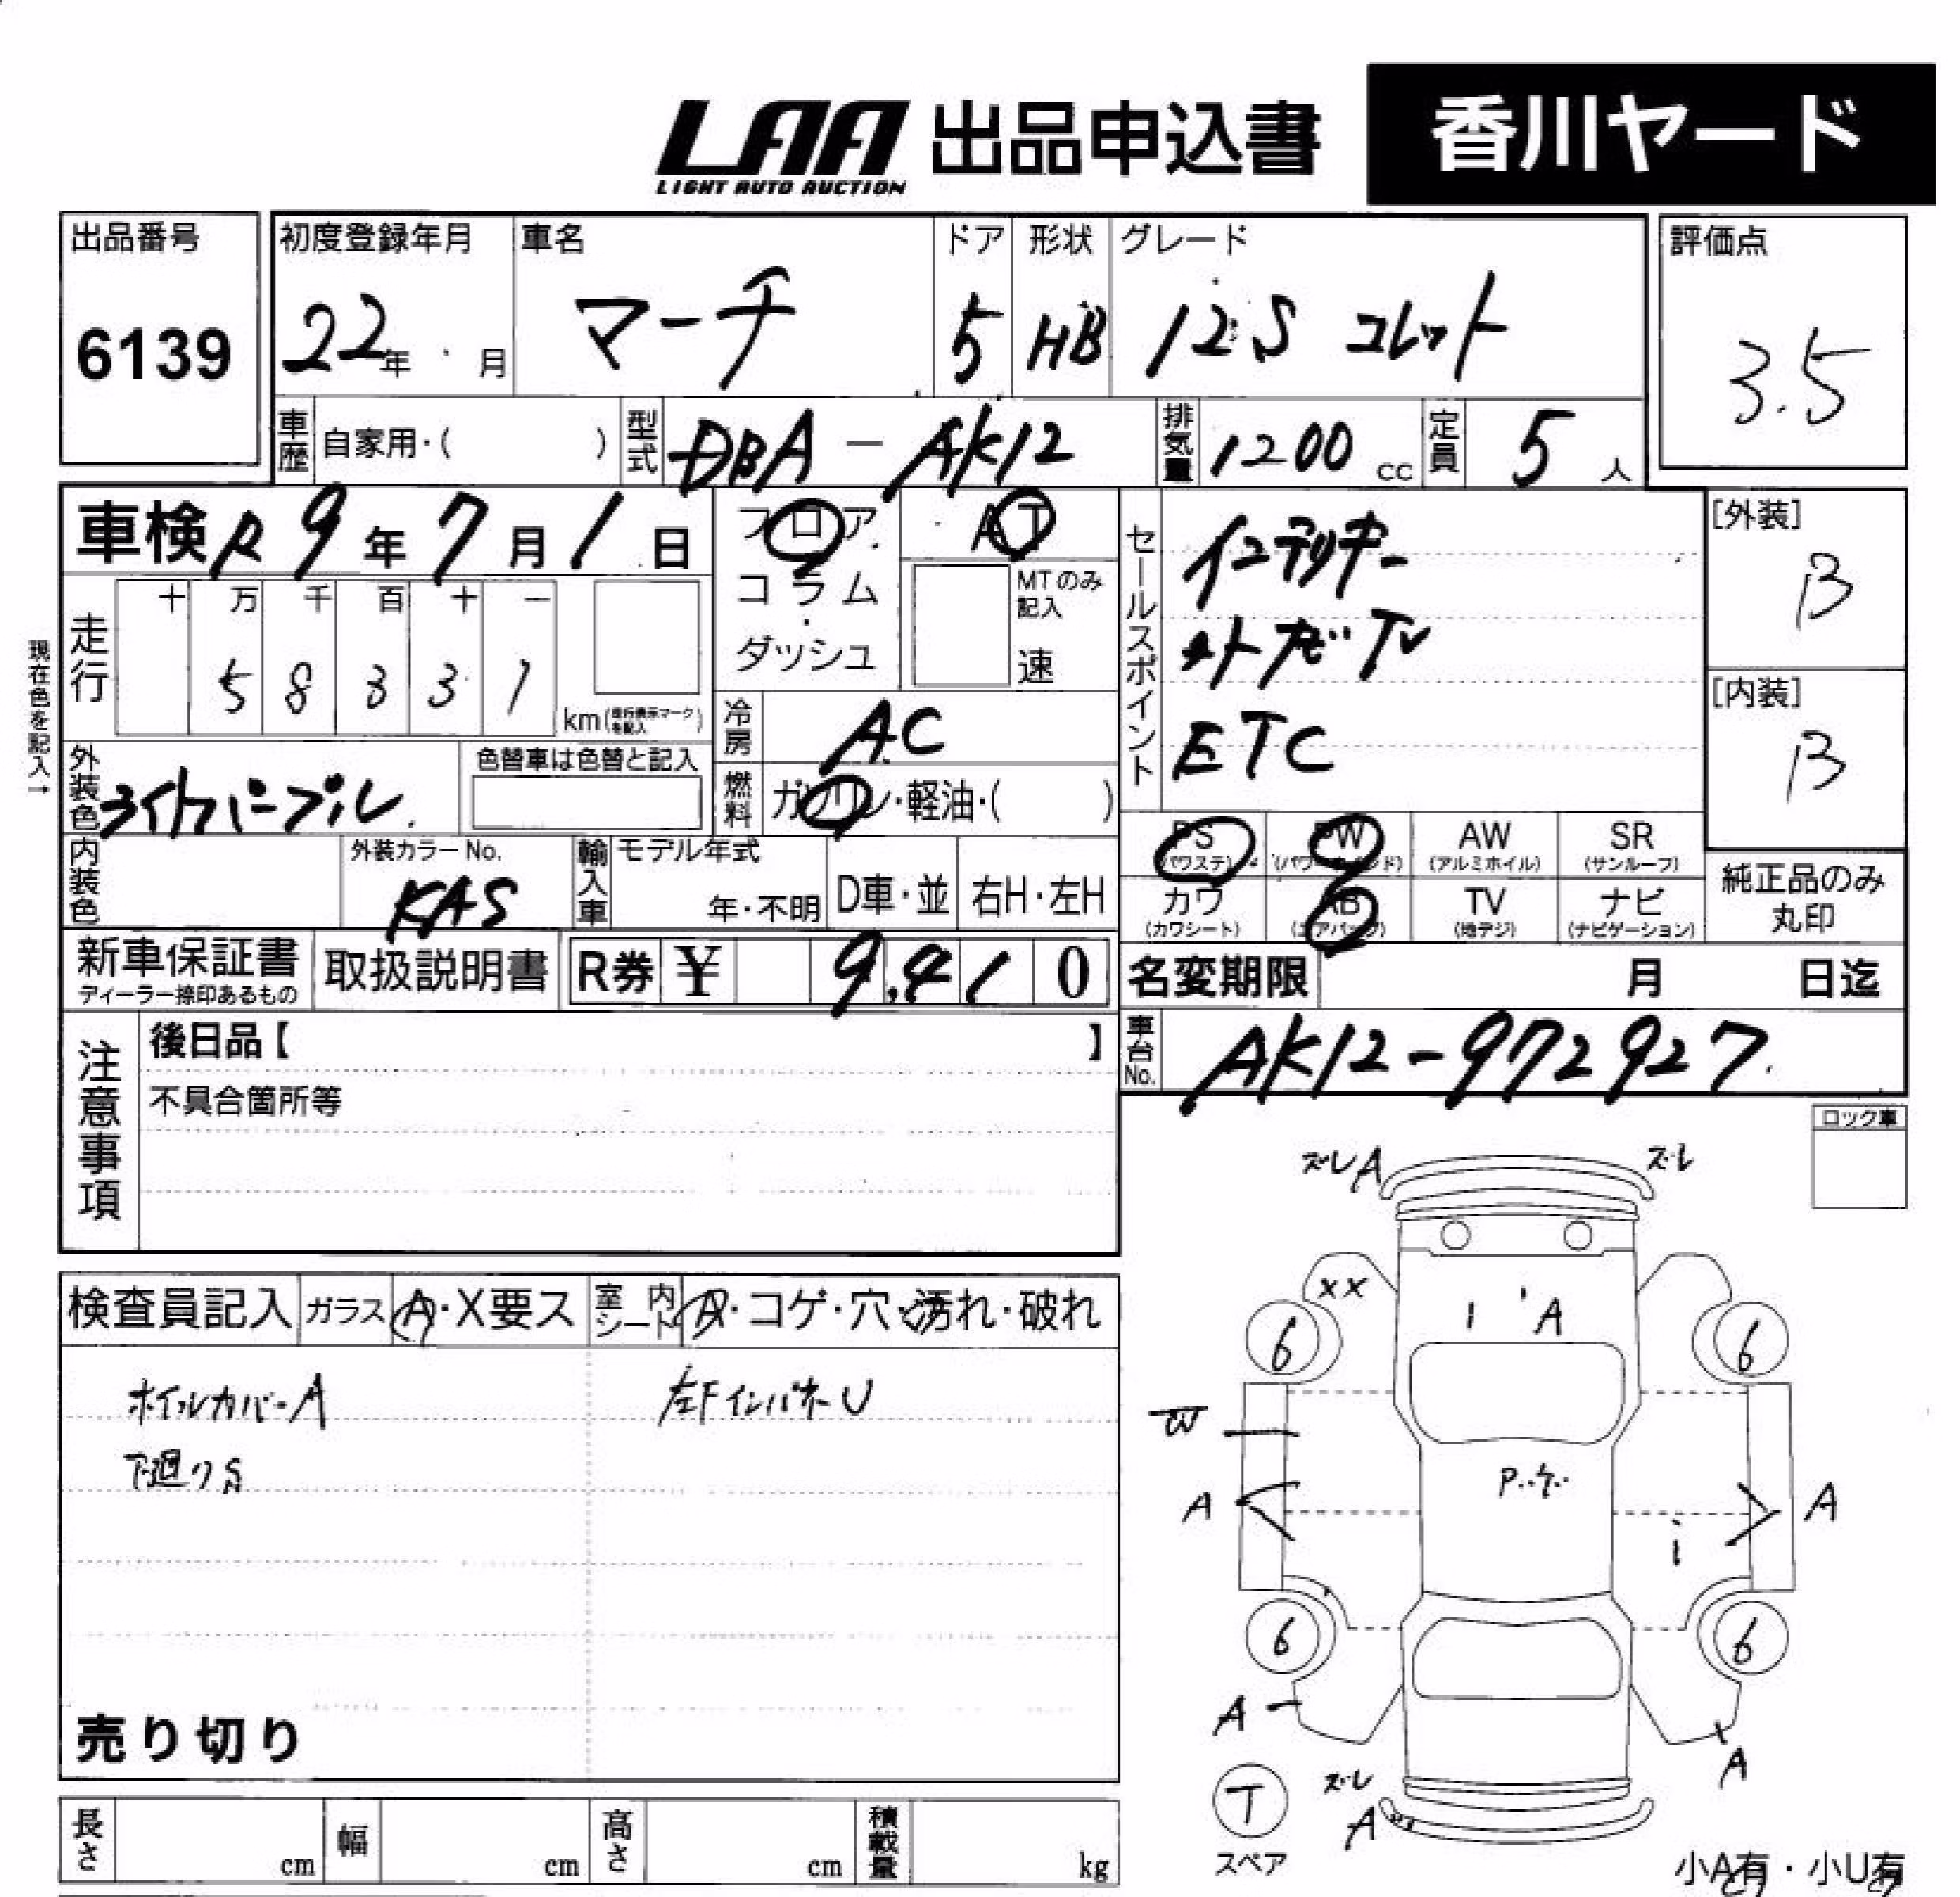 LAA 出品申込書 香川ヤード
LIGHT AUTO AUCTION
出品番号 初度登録年月 車名 ドア 形状 グレード 評価点
6139 22年 月 マーチ 5 HB 12S コレット 3.5
車歴 自家用・( ) 型式 DBA-AK12 排気量 1200 cc 定員 5 人
車検 R9年7月1日 フロア AT セールスポイント インテリキー [外装]
コラム MTのみ記入 B
ダッシュ 速
現在色を記入→
走行 十 万 千 百 十 一
5 8 3 3 1 km(走行表示マークを記入)
ナビ TV
ETC
[内装]
B
冷房 AC
外装色 ライトパープル 色替車は色替と記入
燃料 ガソリン・軽油・( )
PS (パワステ) PW (パワーウインド) AW (アルミホイル) SR (サンルーフ)
内装色 外装カラーNo. KAS 輸入車 モデル年式 年・不明 D車・並 右H・左H
カワ (カワシート) AB (エアバッグ) TV (地デジ) ナビ (ナビゲーション)
純正品のみ
丸印
新車保証書 取扱説明書 R券 ¥ 9,410
ディーラー捺印あるもの
名変期限 月 日迄
車台No. AK12-972927
注意事項 後日品【 】
不具合箇所等
ロック車
検査員記入 ガラス A・X要ス 室内シート A・コゲ・穴・汚れ・破れ
ホイルカバーA 左FインパネU
下廻りS
売り切り
ズレA ズレ
XX
A
6 6
W
P.ケ
A A
6 6
A A
T
スペア
ズレ
A
小A有・小U有
長さ cm 幅 cm 高さ cm 積載量 kg